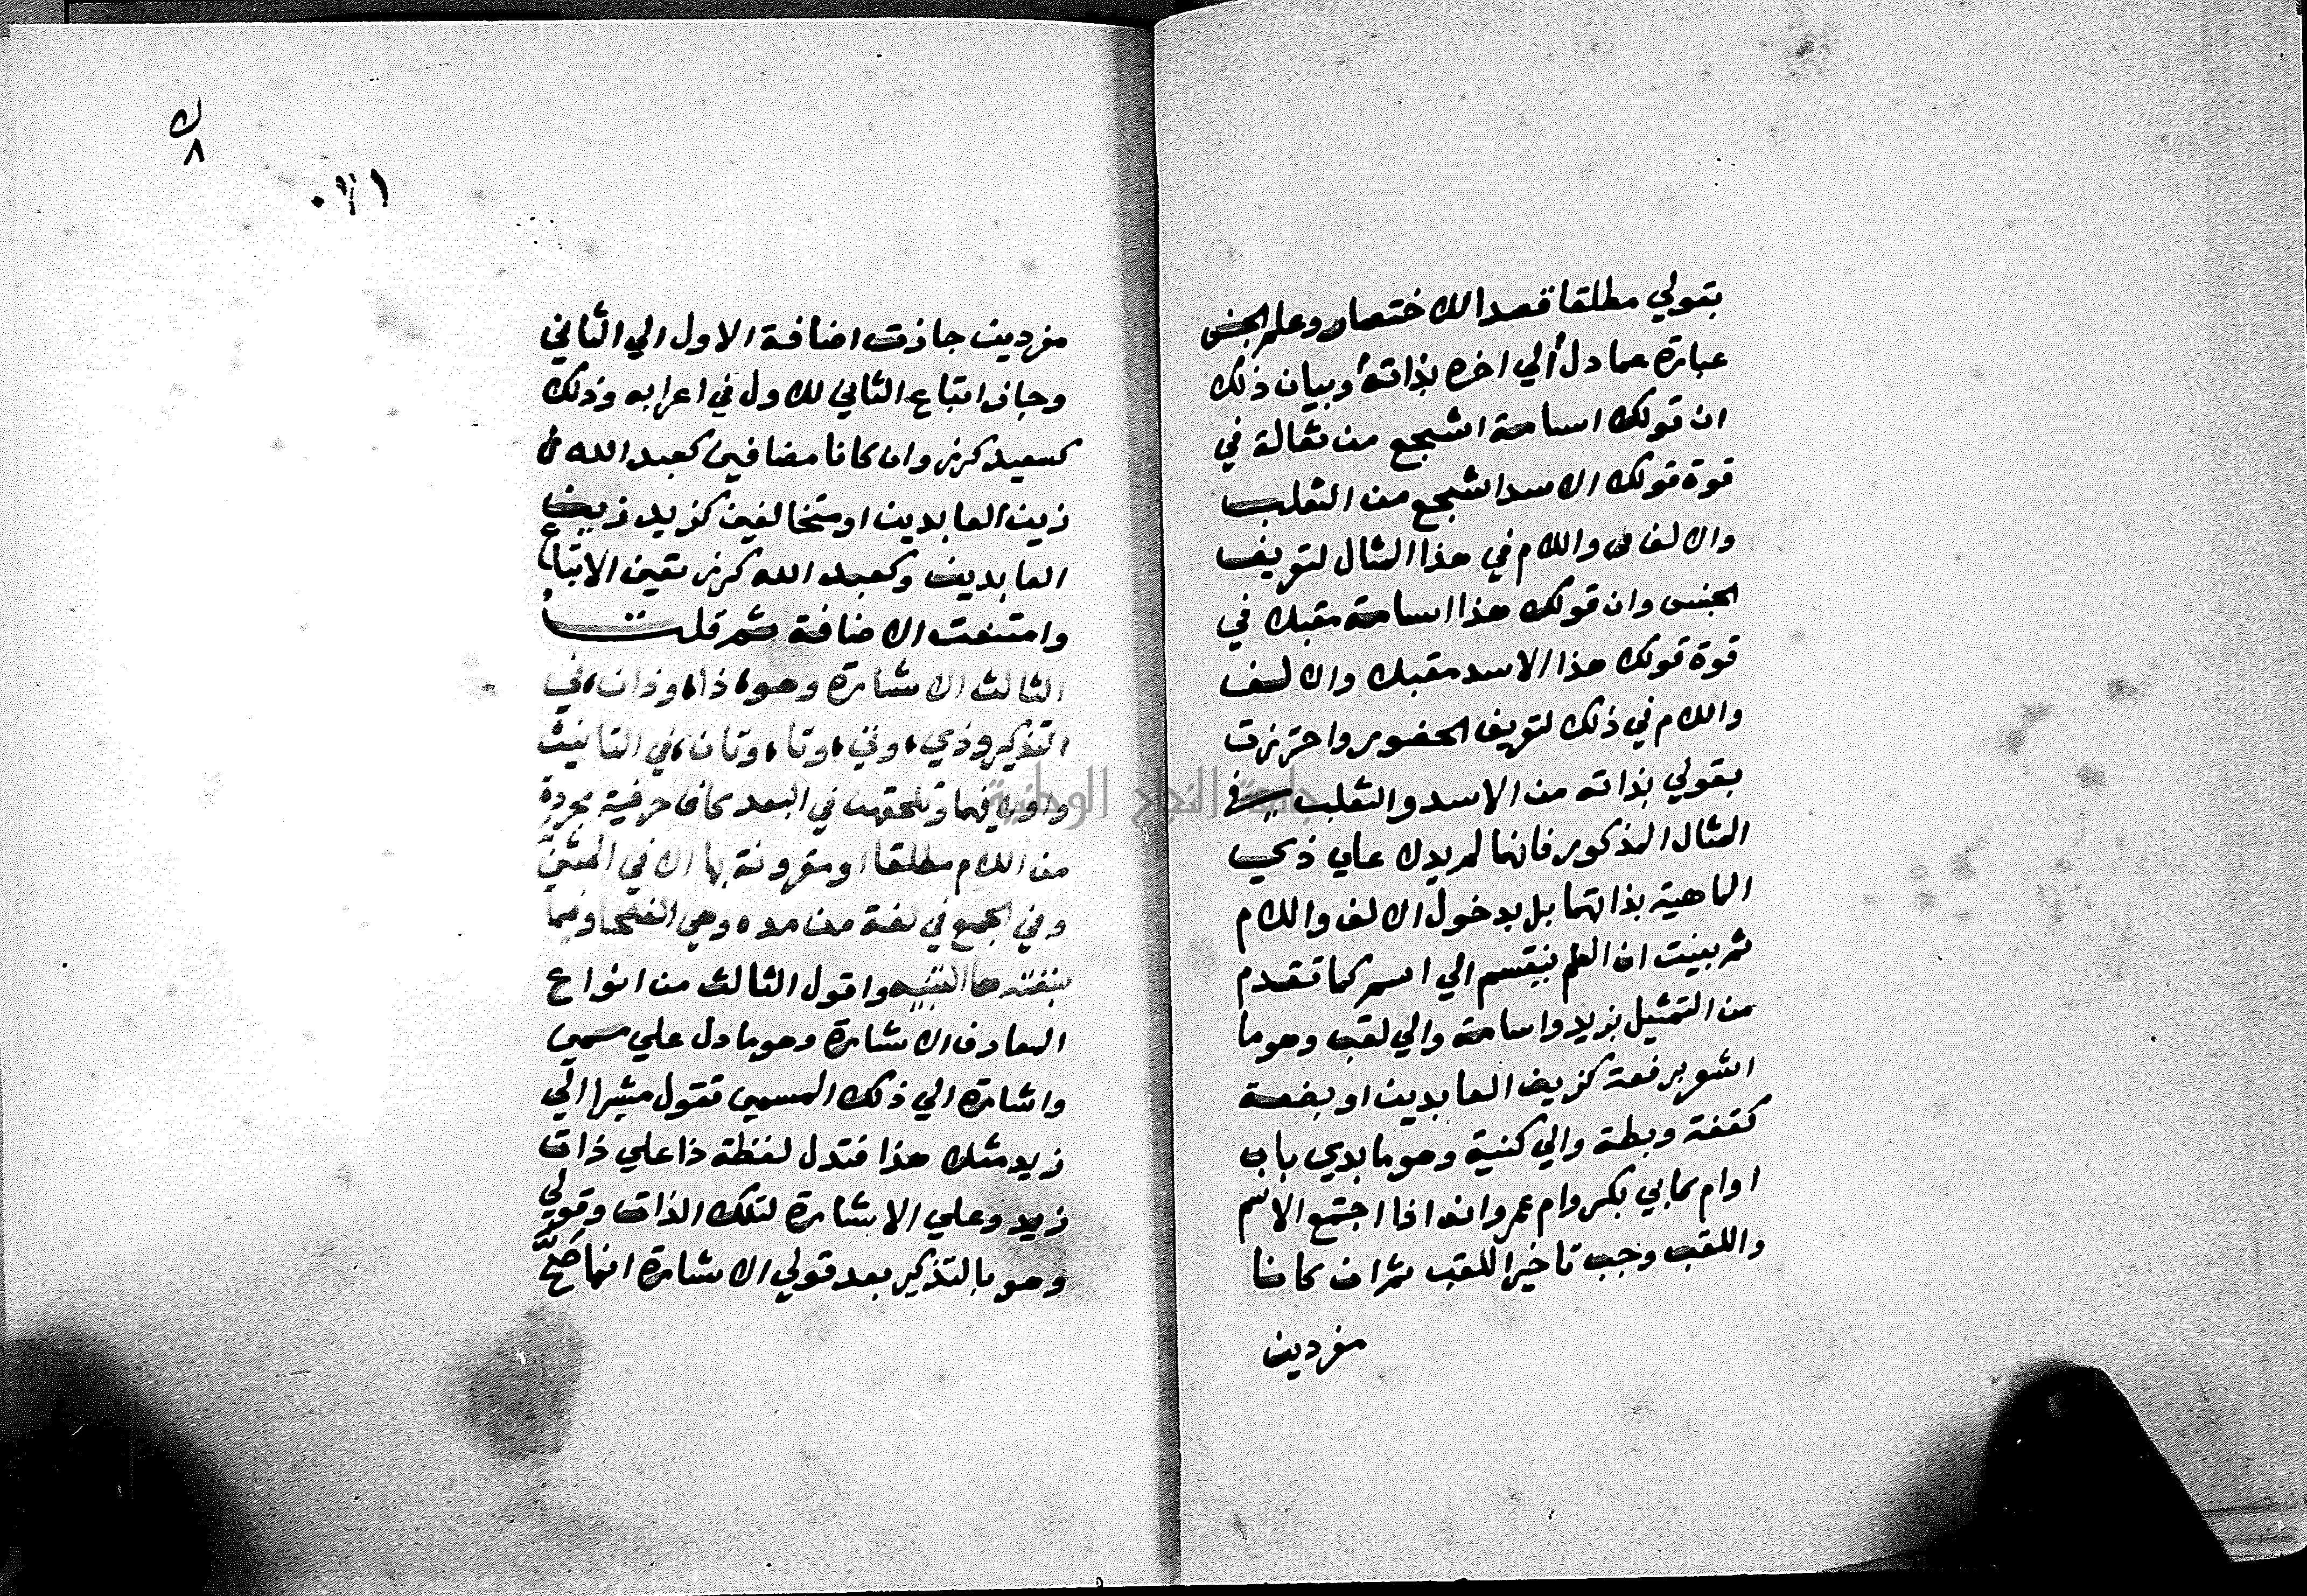 بقولي مطلقا قصدا للاختصار وعلم الجنس
عبارة عما دل الي اخره بذاته وبيان ذلك
ان قولك اسامة اشجع من ثعالة في
قوة قولك الاسد اشجع من الثعلب
والالف واللام في هذا المثال لتعريف
الجنس وان قولك هذا اسامة مقبلا في
قوة قولك هذا الاسد مقبلا والالف
واللام في ذلك لتعريف الحضور واحترزت
بقولي بذاته من الاسد والثعلب في
المثال المذكور فانهما لم يدلا علي ذي
الماهية بذاتهما بل بدخول الالف واللام
ثم بينت ان العلم ينقسم الي اسم كما تقدم
من التمثيل بزيد واسامة والي لقب وهو ما
اشعر برفعة كزين العابدين او بضعة
كقفة وبطة والي كنية وهو ما بدي باب
او ام كابي بكر وام عمرو انه اذا اجتمع الاسم
واللقب وجب تاخير اللقب ثم ان كانا
مفردين
ك
٨
مفردين جازت اضافة الاول الي الثاني
وجاز اتباع الثاني للاول في اعرابه وذلك
كسعيد كرز وان كانا مضافين كعبد الله
زين العابدين او متخالفين كزيد زين
العابدين وكعبد الله كرز تعين الاتباع
وامتنعت الاضافة ثم قلت
الثالث الاشارة وهو ذا وذان في
التذكير وذي وتي وتا وتان في التانيث
واولا فيهما وتلحقهن في البعد كاف حرفية مجردة
من اللام مطلقا او مقرونة بها الا في المثني
وفي الجمع في لغة من مده وهي الفصحا وفيما
سبقته ها التنبيه واقول الثالث من انواع
المعارف الاشارة وهو ما دل علي مسمي
واشارة الي ذلك المسمي تقول مشيرا الي
زيد مثلا هذا فتدل لفظة ذا علي ذات
زيد وعلي الاشارة لتلك الذات وقولي
وهو بالتذكير بعد قولي الاشارة انما صح
جامعة النجاح الوطنية